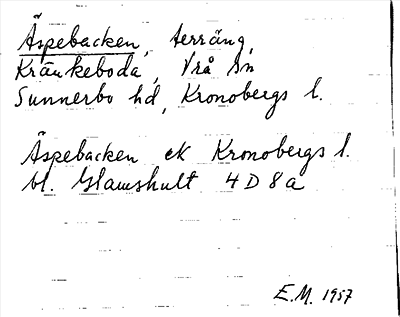 Äspebacken, terräng,
Kränkeboda, Vrå sn
Sunnerbo hd, Kronobergs l.
Äspebacken ek Kronobergs l.
bl. Glamshult 4D8a
E.M. 1957